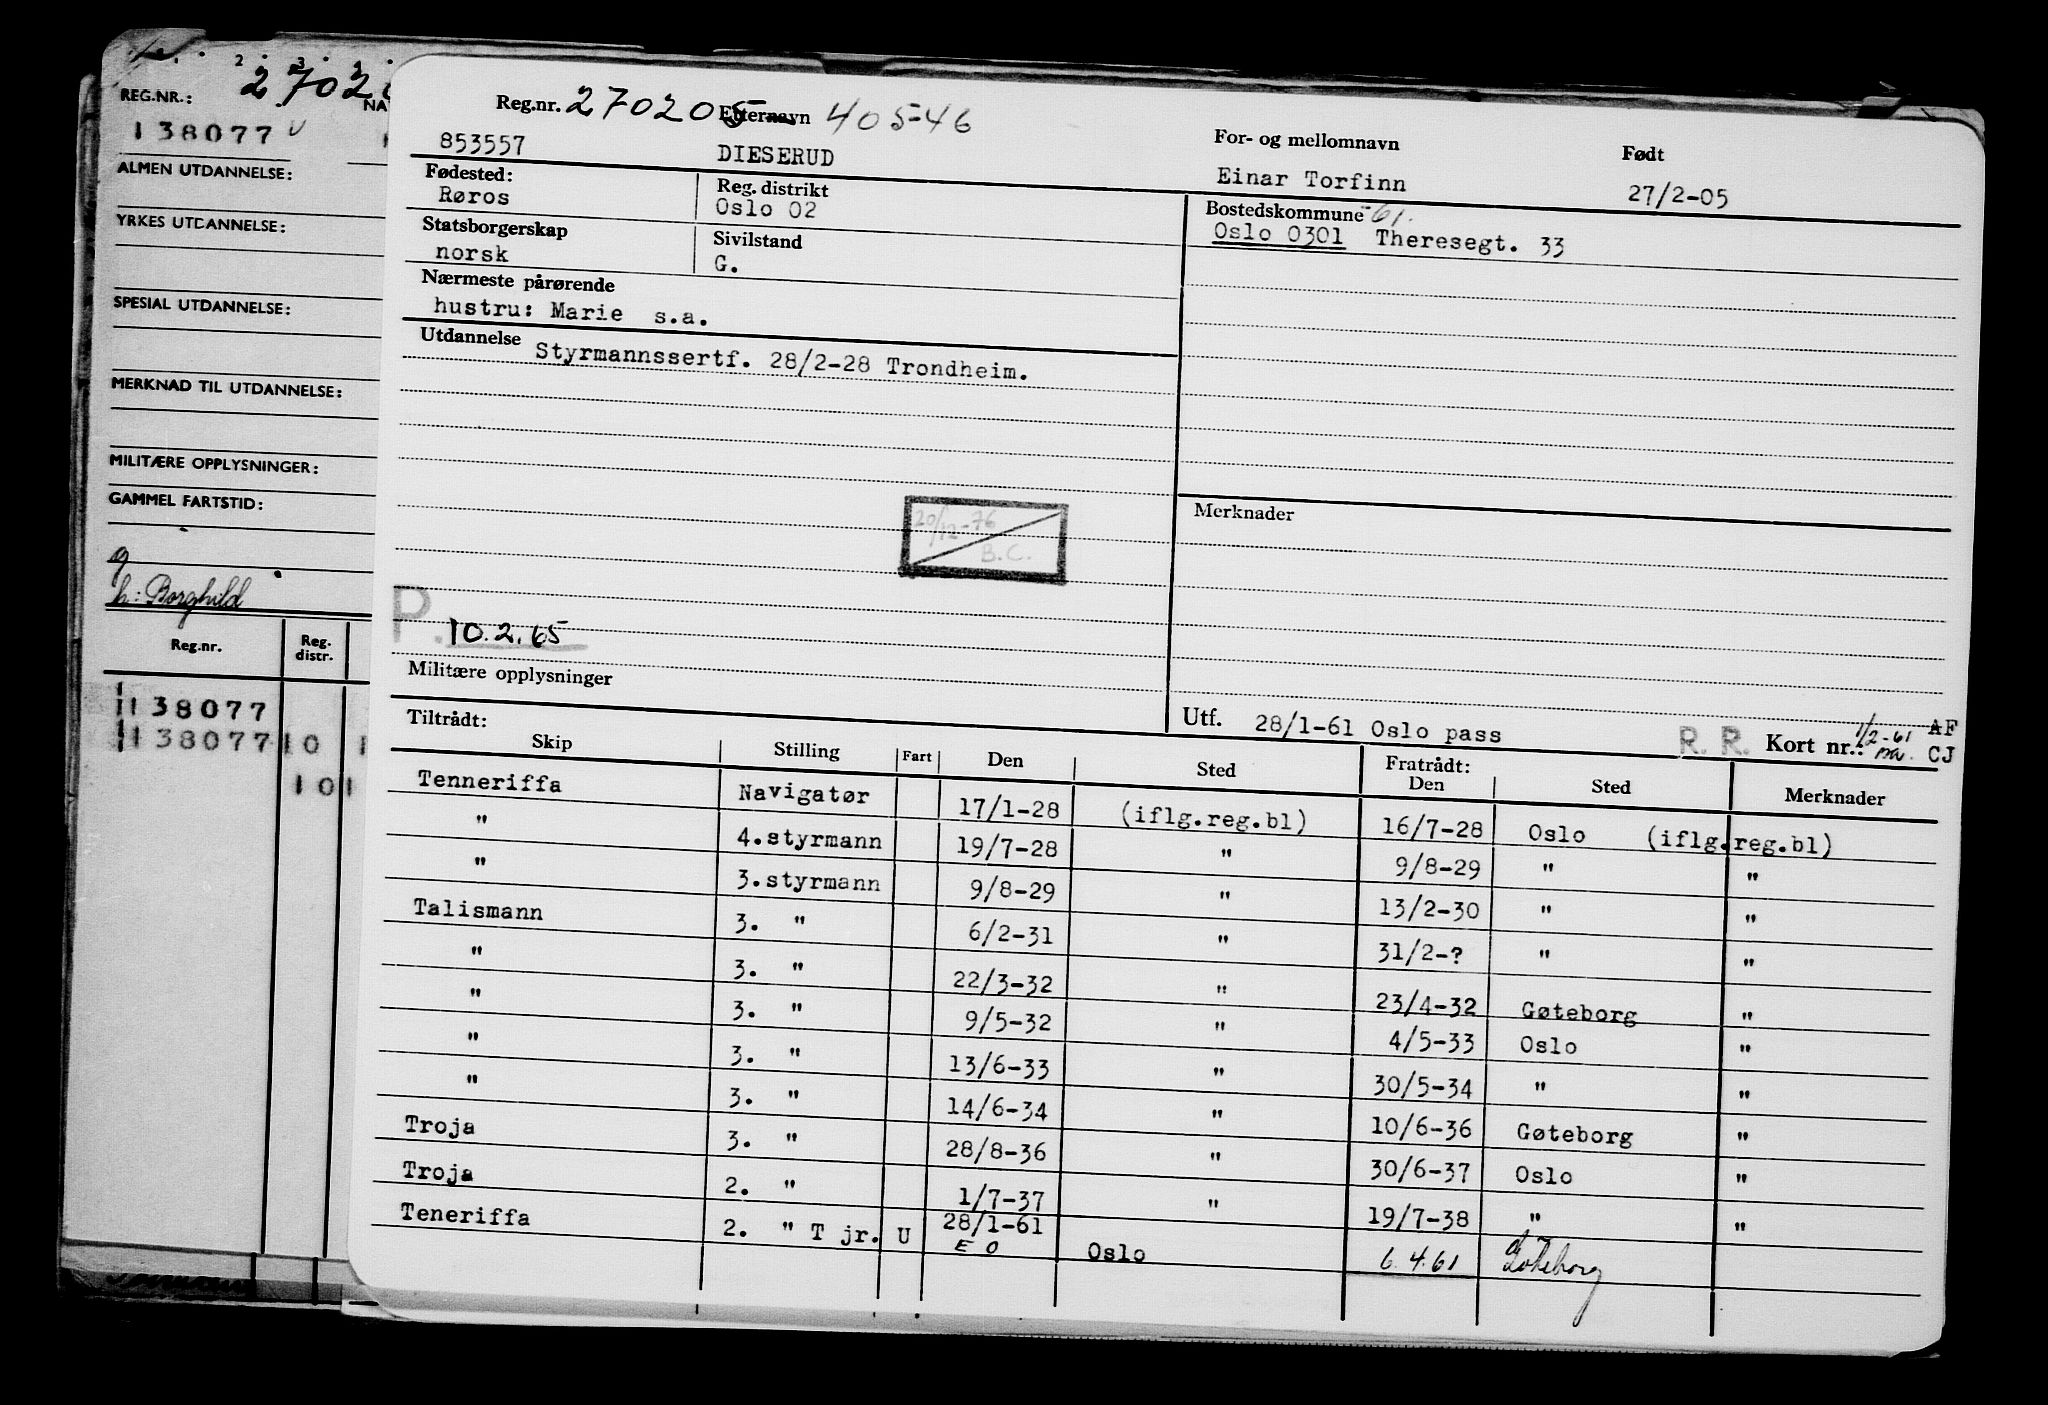 REG.NR.:
NA
138077
ALMEN UTDANNELSE:
YRKES UTDANNELSE:
SPESIAL UTDANNELSE:
MERKNAD TIL UTDANNELSE:
MILITÆRE OPPLYSNINGER:
GAMMEL FARTSTID:
g
h: Borghild
Reg.nr. Reg. distr.
138077
138077 10 1
101
Reg.nr. 270205 Etternavn 40546 For- og mellomnavn Født
853557 DIESERUD Einar Torfinn 27/2-05
Fødested: Reg. distrikt Bostedskommune -61.
Røros Oslo 02 Oslo 0301 Theresegt. 33
Statsborgerskap Sivilstand
norsk G.
Nærmeste pårørende
hustru: Marie s.a.
Utdannelse Styrmannssertf. 28/2-28 Trondheim.
Merknader
20/12-76
B.C.
P. 10.2.65
Militære opplysninger
Utf. 28/1-61 Oslo pass R. R. Kort nr.: 1/2-61 AF
CJ
Tiltrådt: Fratrådt:
Skip Stilling Fart Den Sted Den Sted Merknader
Tenneriffa Navigatør 17/1-28 (iflg.reg.bl) 16/7-28 Oslo (iflg.reg.bl)
" 4.styrmann 19/7-28 " 9/8-29 " "
" 3.styrmann 9/8-29 " 13/2-30 " "
Talismann 3. " 6/2-31 " 31/2-? " "
" 3. " 22/3-32 " 23/4-32 Gøteborg "
" 3. " 9/5-32 " 4/5-33 Oslo "
" 3. " 13/6-33 " 30/5-34 " "
" 3. " 14/6-34 " 10/6-36 Gøteborg "
Troja 3. " 28/8-36 " 30/6-37 Oslo "
Troja 2. " 1/7-37 " 19/7-38 " "
Teneriffa 2. " T jr. U 28/1-61 Oslo 6.4.61 Göteborg
E O